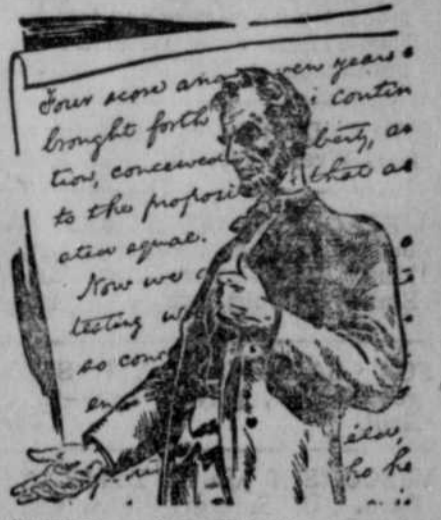 Four score and seven years
brought forth contin
tion, conceived berty, as
to the proposi that as
ated equal.
Now we
testing w
so conc
en
ho he